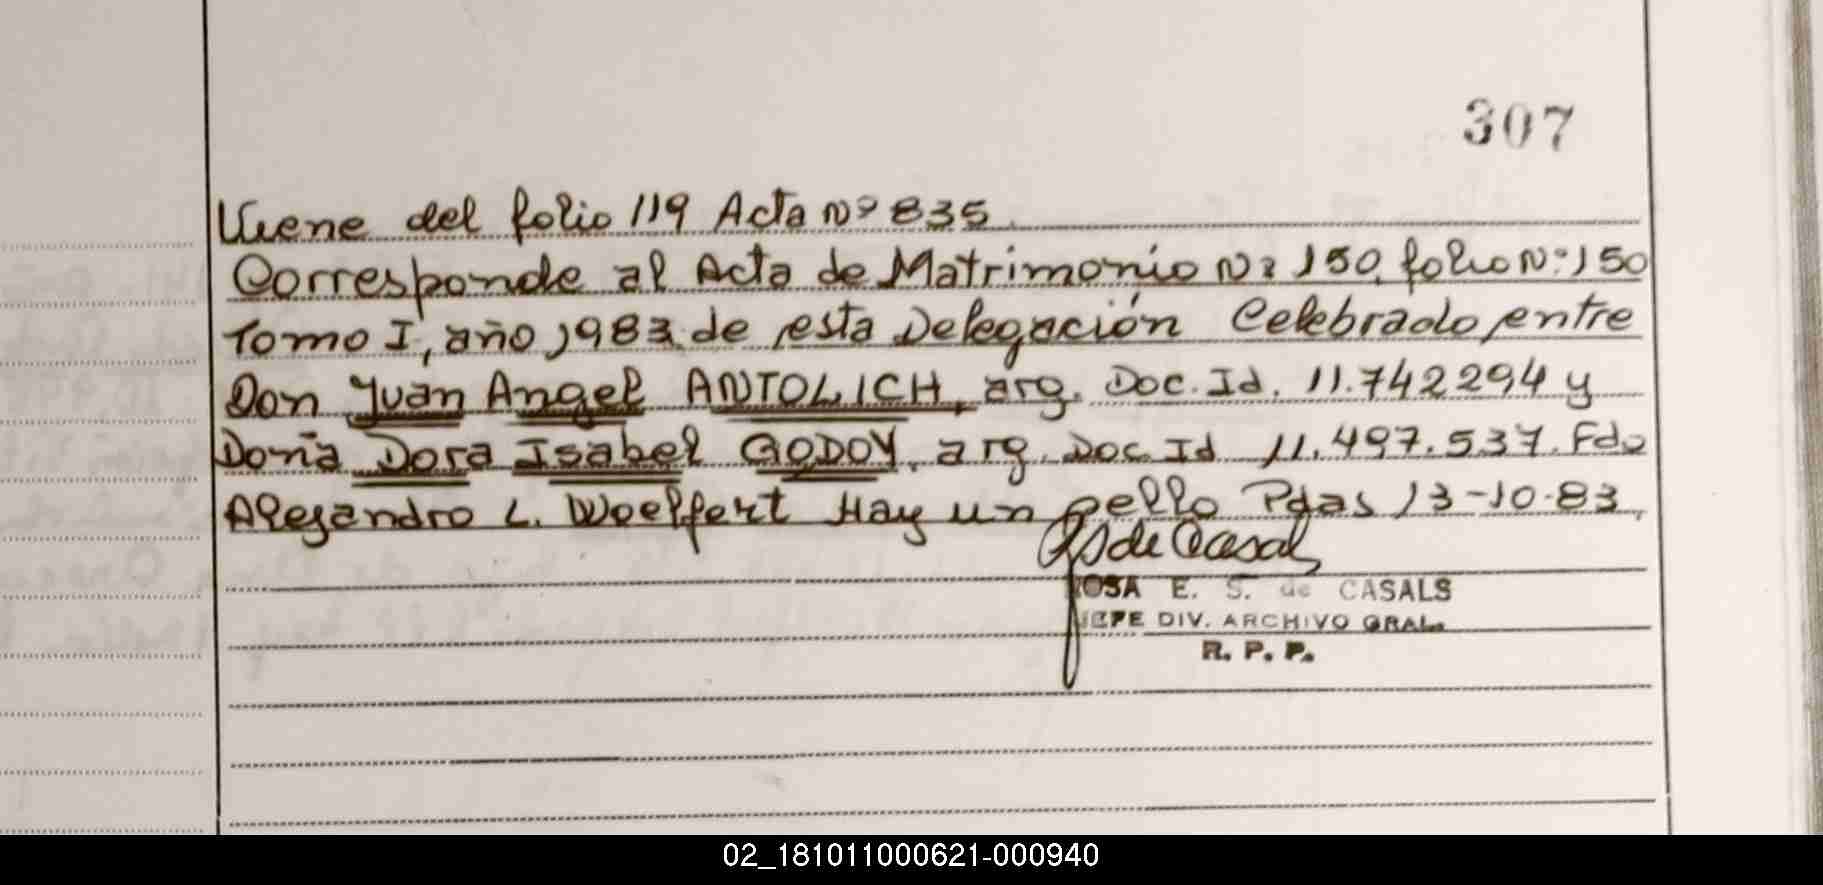 307
Viene del folio 119 Acta Nº 835
Corresponde al Acta de Matrimonio Nº 150, folio Nº 150
Tomo I, año 1983 de esta Delegación Celebrado entre
Don Juan Angel ANTOLICH, arg. Doc. Id. 11.742294 y
Doña Dora Isabel GODOY, arg. Doc. Id 11.497.537. Fdo
Alejandro L. Woelfert Hay un sello Pdas 13-10-83.
de Casals
ROSA E. S. de CASALS
JEFE DIV. ARCHIVO GRAL.
R. P. P.
02_181011000621-000940